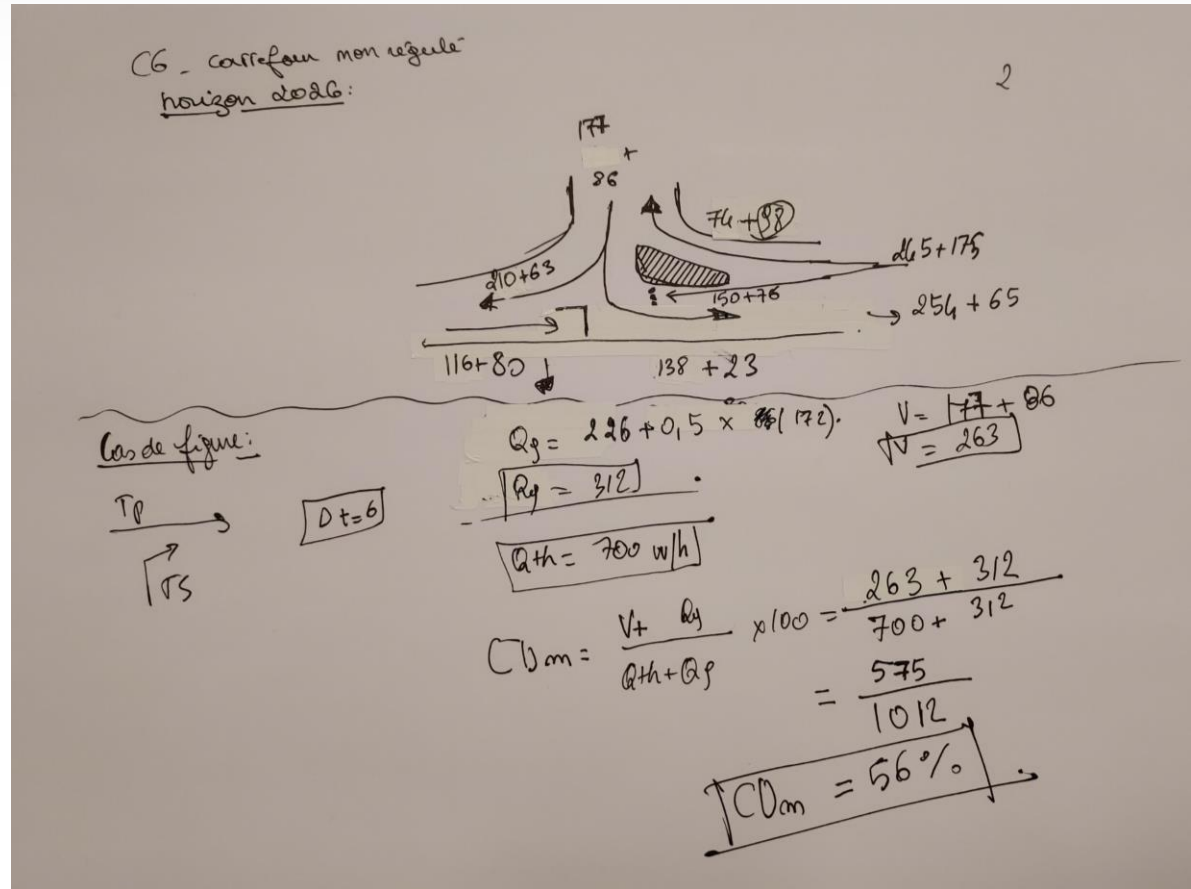 C6 - carrefour non régulé
horizon 2026:
2
177
+
86
74 + 98
265 + 175
210 + 63
150 + 76
→ 254 + 65
116 + 80
138 + 23
Cas de figure:
Tp
TS
Dt=6
Qg = 226 + 0,5 x (172).
Qg = 312
Qth = 700 w/h
V = 177 + 86
V = 263
CDm = V+ Qg / Qth+Qg x100 = 263 + 312 / 700 + 312
= 575 / 1012
CDm = 56 %